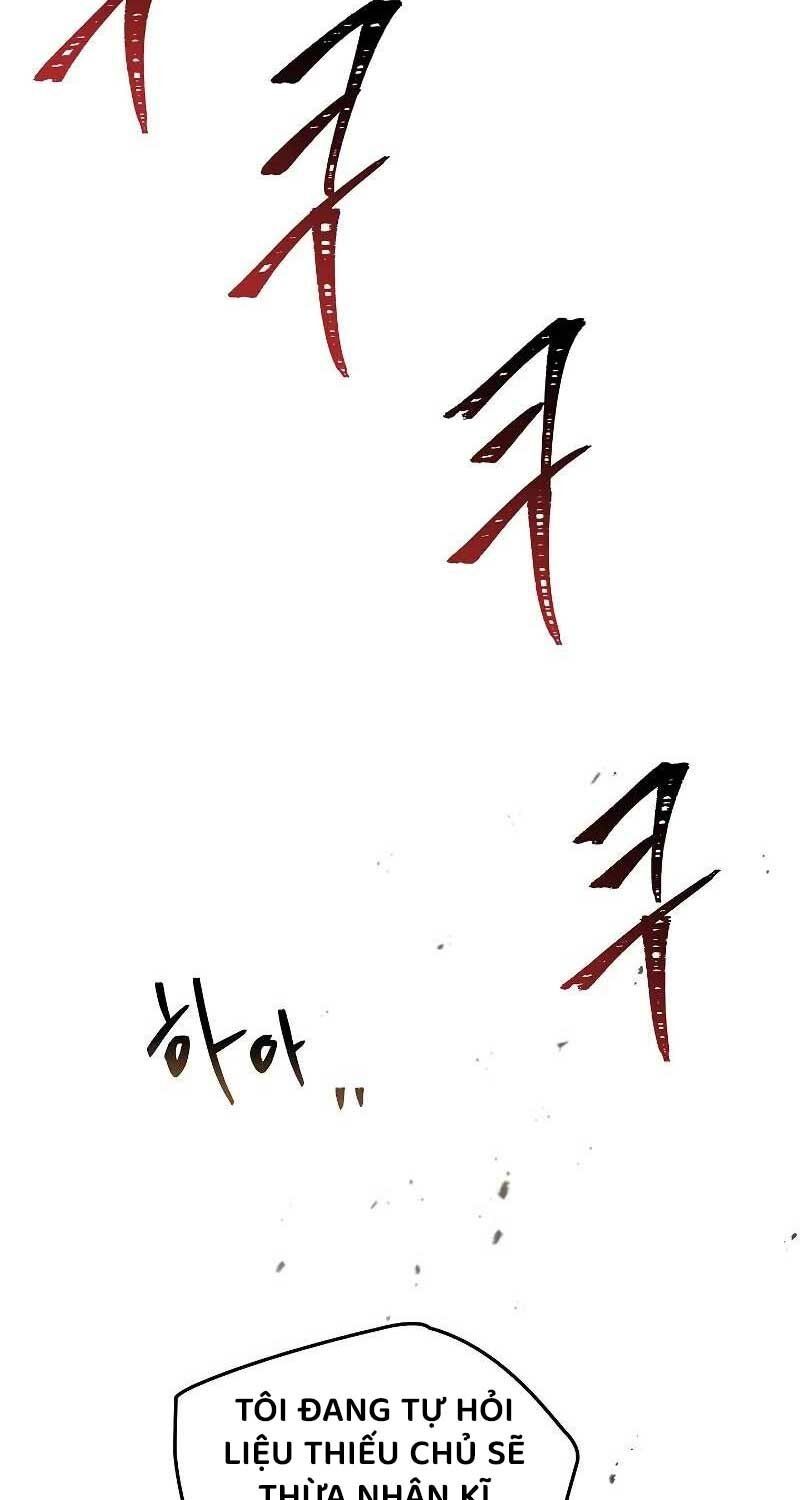 큭
큭
큭
하아"
TÔI ĐANG TỰ HỎI
LIỆU THIẾU CHỦ SẼ
THỪA NHẬN KĨ